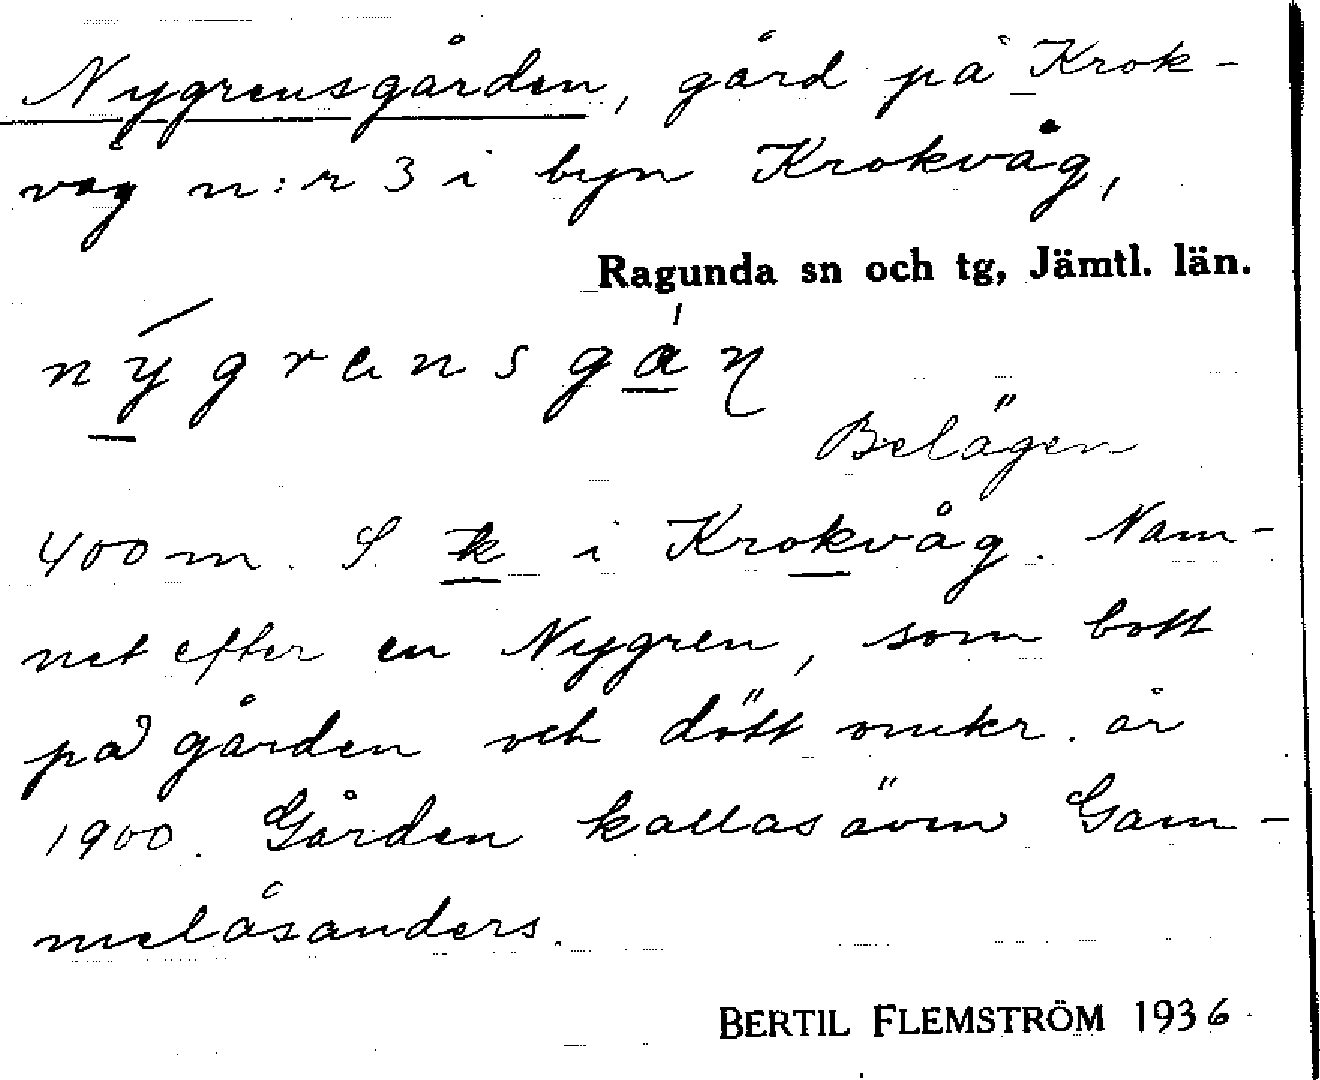 Nygrensgården, gård på Krok-
våg n:r 3 i byn Krokvåg,
Ragunda sn och tg, Jämtl. län.
nýgrensgán
Belägen
400 m. S k i Krokvåg. Nam-
net efter en Nygren, som bott
på gården och dött omkr. år
1900. Gården kallas även Gam-
melåsanders.
BERTIL FLEMSTRÖM 1936